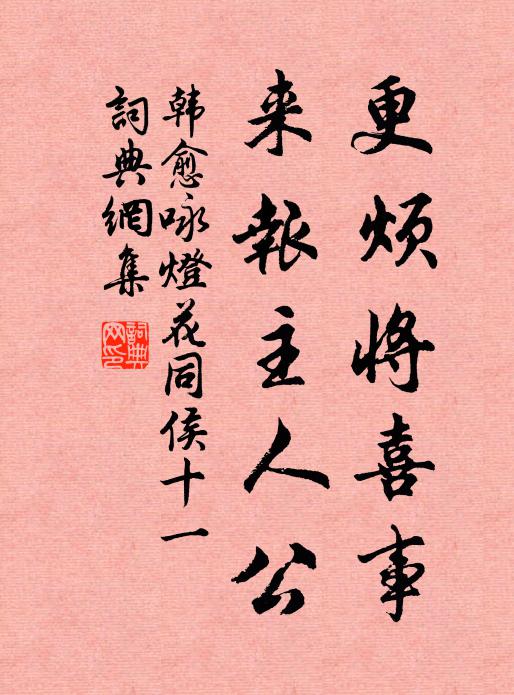 更烦将喜事
来報主人公
韩愈咏燈花同侯十一
詞典網集
詞典网印